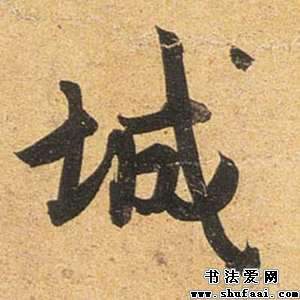 城
书法爱网
www.shufaai.com